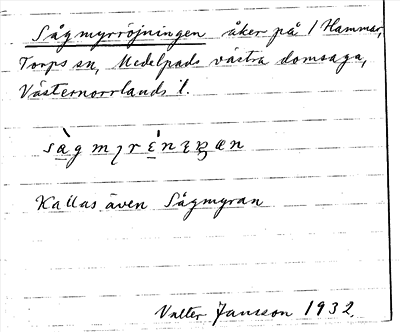 Sågmyrröjningen åker på 1 Hammar,
Torps sn, Medelpads västra domsaga,
Västernorrlands l.
Kallas även Sågmyran
Valter Jansson 1932.